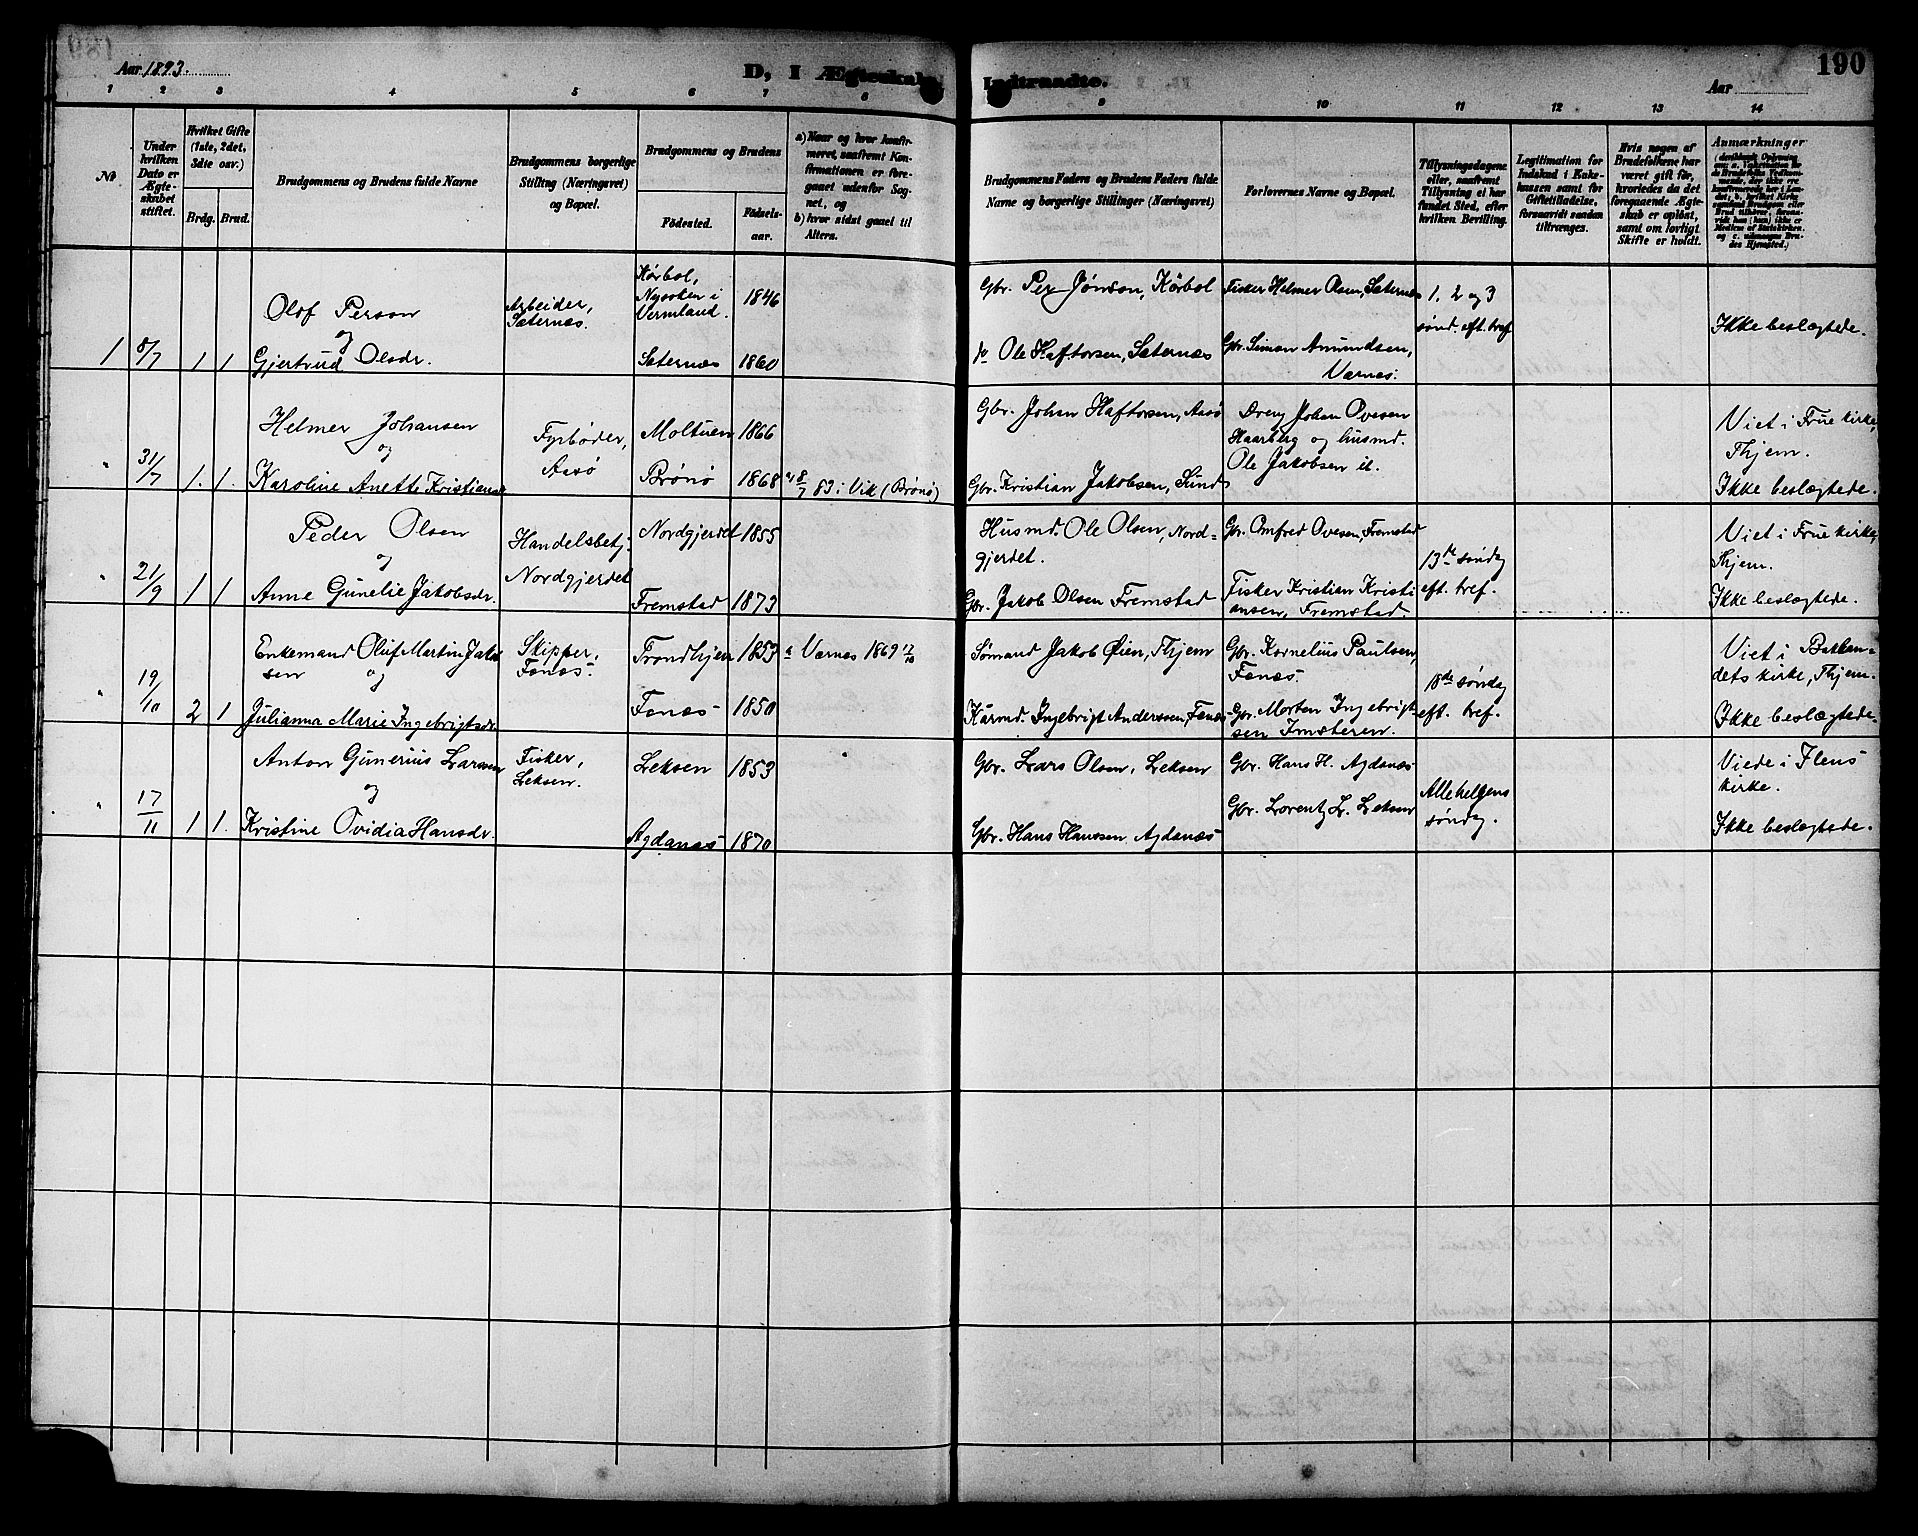 190
Aar 1893.
D, I Ægteskab Indtraadte.
Aar
1 2 3 4 5 6 7 8 9 10 11 12 13 14
No
Under hvilken Dato er Ægteskabet stiftet.
Hvilket Gifte (1ste, 2det, 3die osv.)
Brdg. Brud.
Brudgommens og Brudens fulde Navne
Brudgommens borgerlige Stilling (Næringsvei) og Bopæl.
Brudgommens og Brudens
Födested. Födselsaar.
a) Naar og hvor konfirmeret, saafremt Konfirmationen er foregaaet udenfor Sognet, og
b) hvor sidst gaaet til Alters.
Brudgommens Faders og Brudens Faders fulde Navne og borgerlige Stillinger (Næringsvei)
Forlovernes Navne og Bopæl.
Tillysningsdagene eller, saafremt Tillysning ei har fundet Sted, efter hvilken Bevilling.
Legitimation for Indskud i Enkekassen samt for Giftetilladelse, forsaavidt saadan tiltrænges.
Hvis nogen af Brudefolkene har været gift för, hvorledes da det foregaaende Ægteskab er oplöst, samt om lovligt Skifte er holdt.
Anmærkninger
1 8/7 1 1
Olof Person
og
Gjertrud Olsdr.
Arbeider,
Sæternæs.
Körbol,
Nysoken i
Vermland. 1846
Sæternæs 1860
Gbr. Per Jönson, Körbol
do Ole Haftorsen, Sæternæs
Fisker Helmer Olsen, Sæternæs
Gbr. Simon Amundsen,
Værnes.
1, 2 og 3
sönd. eft. tref
Ikke beslægtede.
" 31/7 1. 1.
Helmer Johansen
og
Karoline Anette Kristiansd
Fyrböder,
Assö
Moltuen 1866
Brönö 1868
a) 8/7 83 i Vik (Brönö)
Gbr. Johan Haftorsen, Assö
Gbr. Kristian Jakobsen, Sund
Dreng Johan Ovesen
Haarberg og husmd.
Ole Jakobsen it.
Viet i Frue kirke,
Thjem.
Ikke beslægtede.
" 21/9 1 1
Peder Olsen
og
Anne Gunelie Jakobsdr.
Handelsbetj.
Nordgjerdet
Nordgjerdet 1855
Fremstad 1873
Husmd. Ole Olsen, Nord=
gjerdet.
Gbr. Jakob Olsen Fremstad
Gbr. Omfred Ovesen, Fremstad
Fisker Kristian Kristi
ansen, Fremstad.
13de söndag
eft. tref.
Viet i Frue kirke,
Thjem.
Ikke beslægtede.
" 19/10 2 1
Enkemand Oluf Martin Jakob
sen og
Julianna Marie Ingebrigtsdr.
Skipper,
Fænæs.
Trondhjem 1853
Fænæs 1850
a Værnes 1869 17/10
Sömand Jakob Öien, Thjem
Kaarmd. Ingebrigt Anderssen, Fænæs
Gbr. Kornelius Paulsen,
Fænæs.
Gbr. Morten Ingebrigt-
sen Imsteren.
18de söndag
eft. tref.
Viet i Bakkelan=
dets kirke, Thjem.
Ikke beslægtede.
" 17/11 1 1.
Anton Gunerius Larssen
og
Kristine Ovidia Hansdr.
Fisker,
Leksen.
Leksen 1853
Agdanæs 1870
Gbr. Lars Olsen, Leksen
Gbr. Hans Hanssen Agdanæs
Gbr. Hans H. Agdanæs
Gbr. Lorentz L. Leksen
Allehelgens
söndag.
Viede i Ilens
kirke.
Ikke beslægtede.